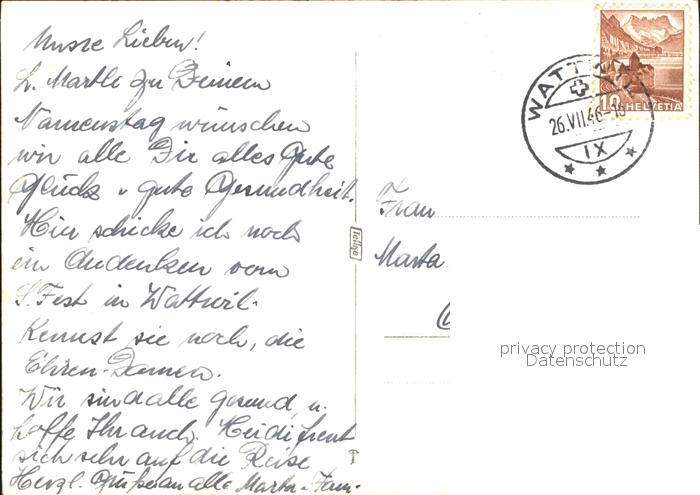 Unsre Lieben!
L. Martle zu Deinem
Namenstag wünschen
wir alle Dir alles Gute
Glück u gute Gesundheit.
Hier schicke ich noch
ein Andenken vom
S. Fest in Wattwil.
Kennst sie noch, die
Ehren-Damen.
Wir sind alle gesund u.
hoffe Ihr auch. Heidi freut
sich sehr auf die Reise
Herzl. Grüße an alle Martha - Fam.
Tellge
WATTWIL
26.VII.46-18
IX
10 HELVETIA
Frau
Marta
privacy protection
Datenschutz